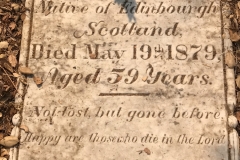 Native of Edinbourgh
Scotland.
Died May 19th 1879,
Aged 59 Years.
Not lost, but gone before,
Happy are those who die in the Lord